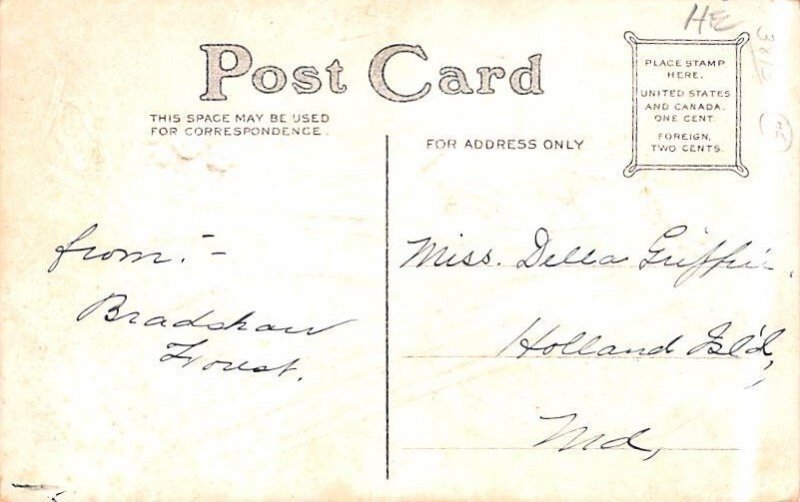 HE
Post Card
THIS SPACE MAY BE USED
FOR CORRESPONDENCE.
FOR ADDRESS ONLY
PLACE STAMP
HERE.
UNITED STATES
AND CANADA.
ONE CENT.
FOREIGN,
TWO CENTS.
from:-
Bradshaw
Miss. Della Griffin.
Holland Isl'd,
Md,